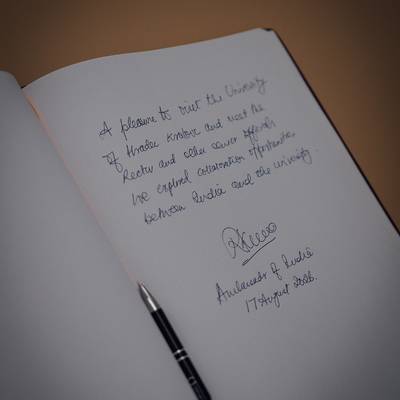 A pleasure to visit the University
of Hradec Kralove and meet the
Rector and other senior officials
We explored collaboration opportunities
between India and the University.
Ambassador of India
17 August 2026.